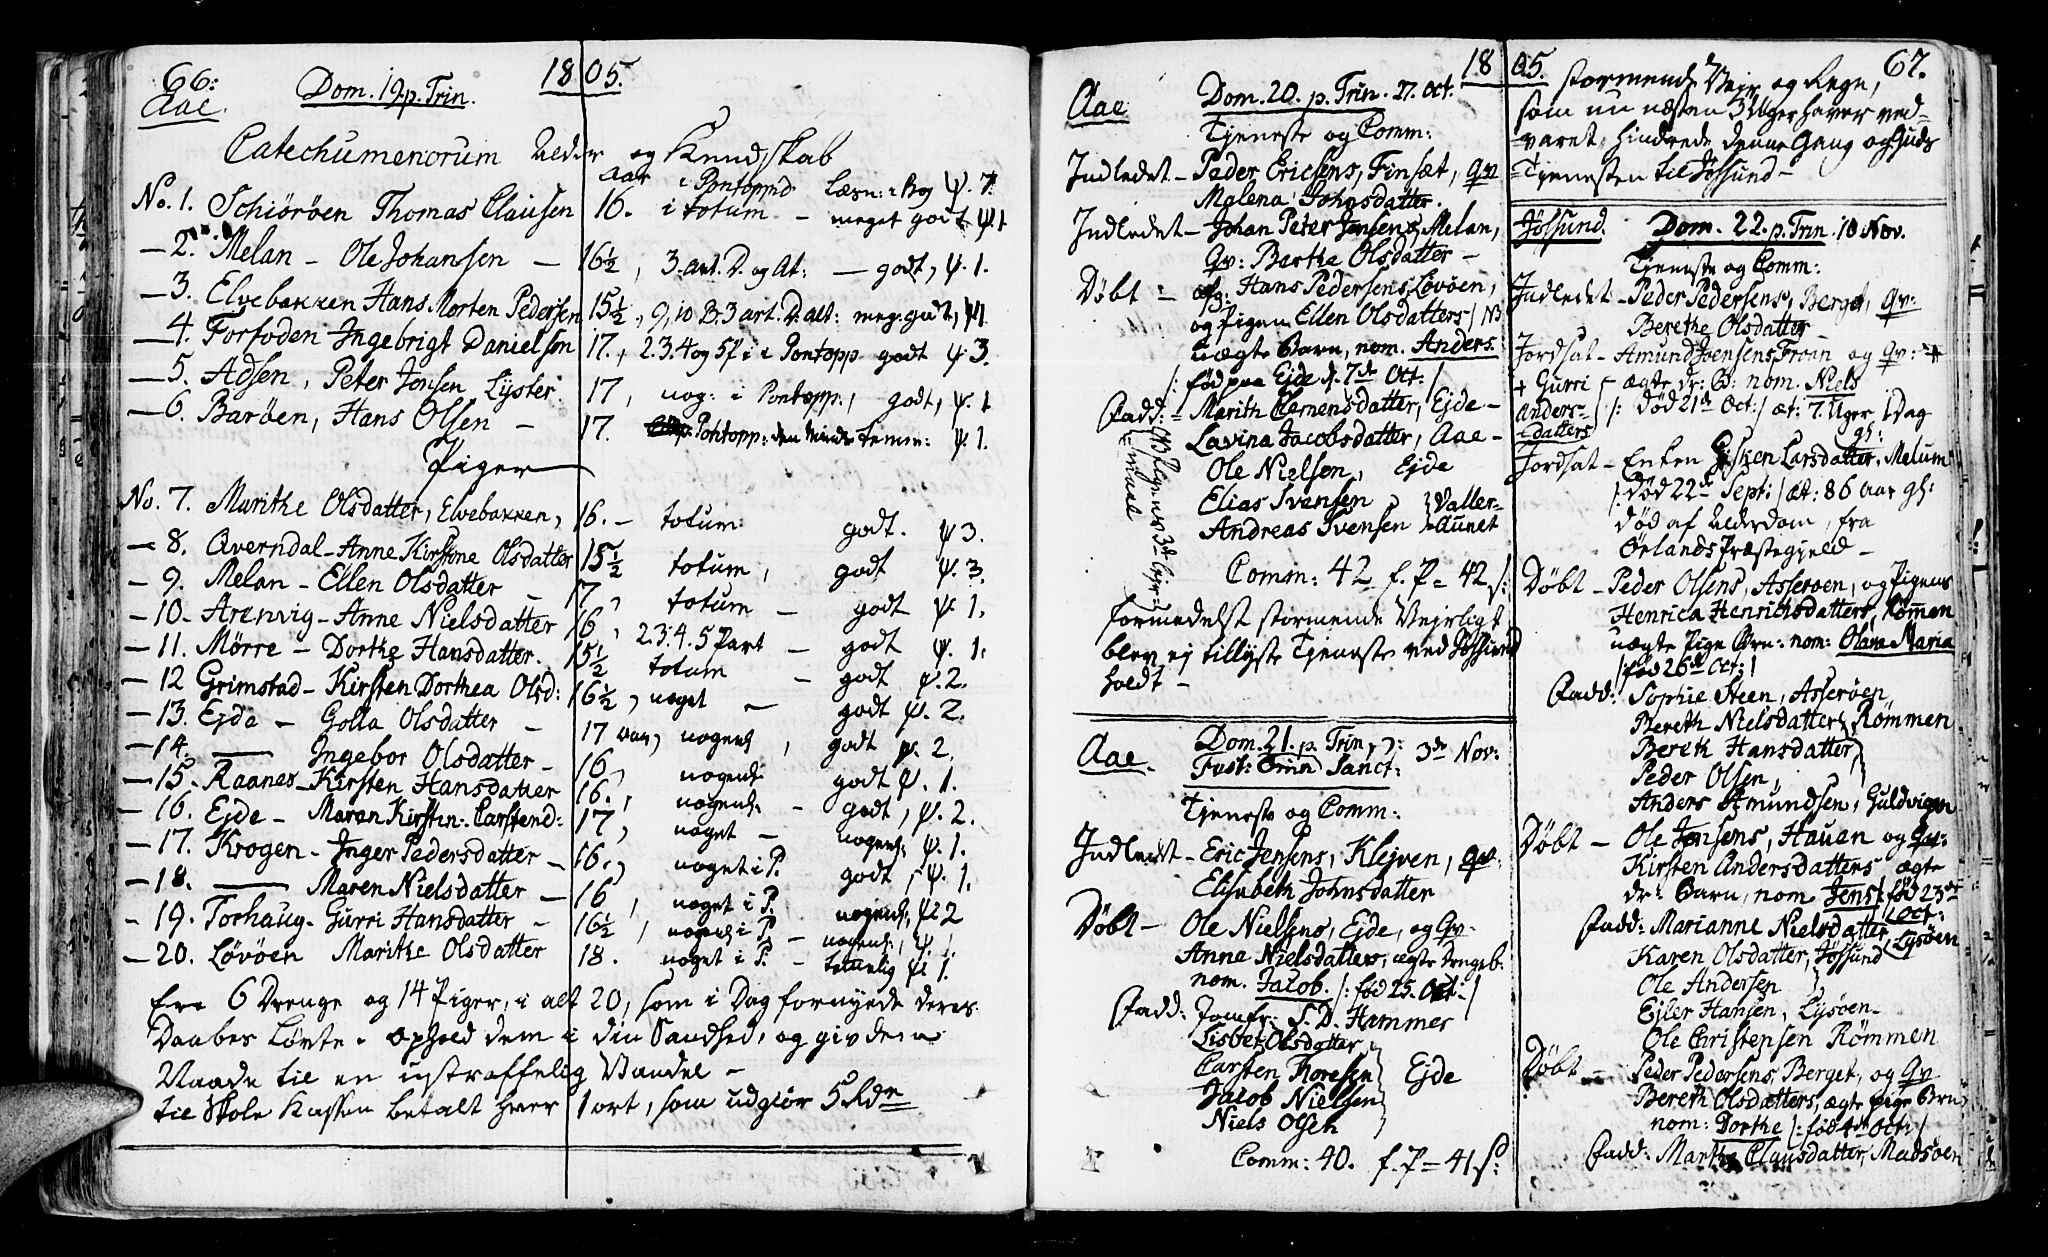 66. 1805.
Aae. Dom. 19. p. Trin.
Catechumenorum Alder og Kundskab
Aar i Pontoppid Læsn: i Bog ψ. 7.
No. 1. Schiöröen Thomas Clausen 16. i totum - meget godt ψ 1
- 2. Melan - Ole Johansen - 16½, 3. art. D. og At: - godt, ψ. 1.
- 3. Elvebakken Hans Morten Pedersen 15½, 9, 10 B. 3 art. D. alt: meg. godt, ψ 1.
- 4. Forfoden Ingebrigt Danielsen 17., 2. 3. 4 og 5 P i Pontopp godt ψ 3.
- 5. Adsen, Peter Jonsen Lyster. 17, nog: i Pontopp:, godt, ψ. 1
- 6. Baröen, Hans Olsen - 17. Pontopp: den Mindre temm: ψ. 1.
Piger
No. 7. Marithe Olsdatter, Elvebakken, 16. - totum godt. ψ 3.
- 8. Averndal - Anne Kirstine Olsdatter 15½ totum, godt ψ. 3.
- 9. Melan - Ellen Olsdatter - 17, totum - godt ψ. 1.
- 10. Arenvig - Anne Nielsdatter 16, 2. 3. 4. 5 Part - godt ψ. 1.
- 11. Mörre - Dorthe Hansdatter. 15½ totum - godt ψ. 2.
- 12 Grimstad - Kirsten Dorthea Olsd: 16½, noget - godt ψ. 2.
- 13. Ejde - Golla Olsdatter - 17 Aar, nogenl:, godt ψ. 2.
- 14. —— Ingebor Olsdatter - 16, nogenl: godt ψ. 1.
- 15. Raanes - Kirsten Hansdatter 16., nogenl: - godt, ψ. 2.
- 16. Ejde - Maren Kirstin. Carstend: 17, noget - nogenl: ψ. 1.
- 17. Krogen - Inger Pedersdatter - 16., noget i P. godt, ψ. 1.
- 18. —— Maren Nielsdatter - 16, noget i P. nogenl, ψ. 2
- 19. Torhaug - Gurri Hansdatter - 16½, nogenl i P - nogenl:, ψ. 1.
- 20. Lövöen Marithe Olsdatter 18. noget i P. - temelig ψ 1.
Ere 6 Drenge og 14 Piger, i alt 20, som i Dag fornyede deres
Daabes Løvte. ophold dem i din Sandhed, og giv dem
Naade til en ustraffelig Vandel -
til Skole Kassen betalt hver 1 ort, som udgiör 5 Rdr
1805. 67.
Aae Dom. 20. p. Trin. 27. Oct:
Tjeneste og Comm:
Indledet - Peder Ericsens, Finsæt, Qv
Malena Johnsdatter.
Indledet - Johan Peter Jensens, Melan,
Qv: Berthe Olsdatter -
Döbt - afg: Hans Pedersens, Lövöen,
og Pigen Ellen Olsdatters NB
uægte Barn, nom. Anders
/: föd paa Ejde d. 7de Oct: /
Fadd: - Marith Clemensdatter, Ejde -
Lavina Jacobsdatter, Aae -
Ole Nielsen, Ejde
Elias Ivensen } Valler-
Andreas Ivensen } aunet
Comm: 42 f. P = 42 s:
Formedelst stormende Vejrligt
blev ej tillyste Tjeneste ved Jössund
holdt -
Aae. Dom. 21. p. Trin, ɔ: 3de Nov:
Fest: Omn Sanct:
Tjeneste og Comm:
Indledet - Eric Jensens, Klejven, Qv.
Elisabeth Johnsdatter
Döbt - Ole Nielsens, Ejde, og Qv.
Anne Nielsdatters, ægte Drengeb:
nom. Jacob. /: föd 25. Oct: /
Fadd: Jomfr: S. D. Hammer
Lisbet Olsdatter
Carsten Toresen } Ejde
Jacob Nielsen
Niels Olsen
Comm: 40. f. P = 41 s:
stormende Vejr og Regn,
som nu næsten 3 Uger haver ved-
varet, hindrede denne Gang og Guds
Tjenesten til Jössund -
Jössund. Dom. 22. p. Trin. 10 Nov.
Tjeneste og Comm:
Indledet - Peder Pedersens, Berget, Qv:
Berethe Olsdatter
Jordsat - Amund Joensens, Froan og Qv: +
+ Gurri Anders-datters - ægte dr: B: nom. Niels
/: död 21de Oct: / æt: 7. Uger 1 Dag
Jordsat - Enken Gisken Larsdatter, Melum
/: död 22de Sept: / æt: 86 Aar gl:
död af Alderdom, fra
Örlands Præstegjeld -
Döbt - Peder Olsens, Asseröen, og Pigens
Henrica Henrichsdatters, Römmen
uægte Pige Brn: nom: Olava Maria
/ föd 26de Oct: /
Fadd: Sophie Steen, Asseröen
Bereth Nielsdatter, Römmen
Bereth Hansdatter
Peder Olsen,
Anders Amundsen, Guldvigen
Döbt - Ole Jensens, Hauan og Qv:
Kirsten Andersdatters ægte
dr: Barn, nom Jens / föd 23de Oct:
Fadd: Marianne Nielsdatter, Lysöen
Karen Olsdatter, Jössund
Ole Andersen
Ejler Hansen, Lysöen -
Ole Christensen Römmen
Döbt - Peder Pedersens, Berget, og Qv
Bereth Olsdatters, ægte pige Brn
nom: Dorthe /: föd 4de Oct: /
Fadd: Marthe Clausdatter, Madsöen